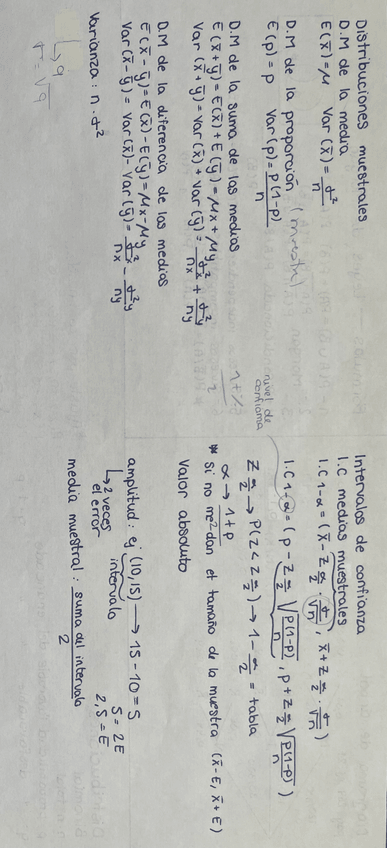 Distribuciones muestrales
D.M de la media
E(x̄)=μ   Var(x̄)=σ²/n
D.M de la proporción (muestral)
E(p)=p   Var(p)=p(1-p)/n
D.M de la suma de las medias
E(x̄+ȳ)=E(x̄)+E(ȳ)=μx+μy
Var(x̄+ȳ)=Var(x̄)+Var(ȳ)=σ²x/nx + σ²y/ny
D.M de la diferencia de las medias
E(x̄-ȳ)=E(x̄)-E(ȳ)=μx-μy
Var(x̄-ȳ)=Var(x̄)-Var(ȳ)=σ²x/nx - σ²y/ny
Varianza: n·σ²
↳ 9
σ=√9
Intervalos de confianza
I.C medias muestrales
I.C 1-α=(x̄-Z α/2 · σ/√n, x̄+Z α/2 · σ/√n)
I.C 1-α=(p-Z α/2 √(p(1-p)/n), p+Z α/2 √(p(1-p)/n))
nivel de
confianza
1+%
2
Z α/2 → P(Z<Z α/2) → 1-α/2 = tabla
α → 1+p/2
* Si no me dan el tamaño de la muestra (x̄-E, x̄+E)
Valor absoluto
amplitud: ej (10,15) → 15-10=5
↳ 2 veces
el error
intervalo
5=2E
2,5=E
media muestral: suma del intervalo/2